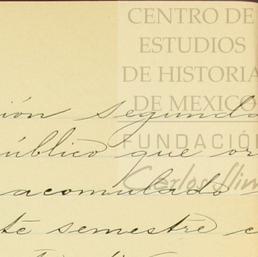 CENTRO DE
ESTUDIOS
DE HISTORIA
DE MEXICO
ión segundo
FUNDACIÓN
público que or
Carlos Slim
acomulado
te semestre c